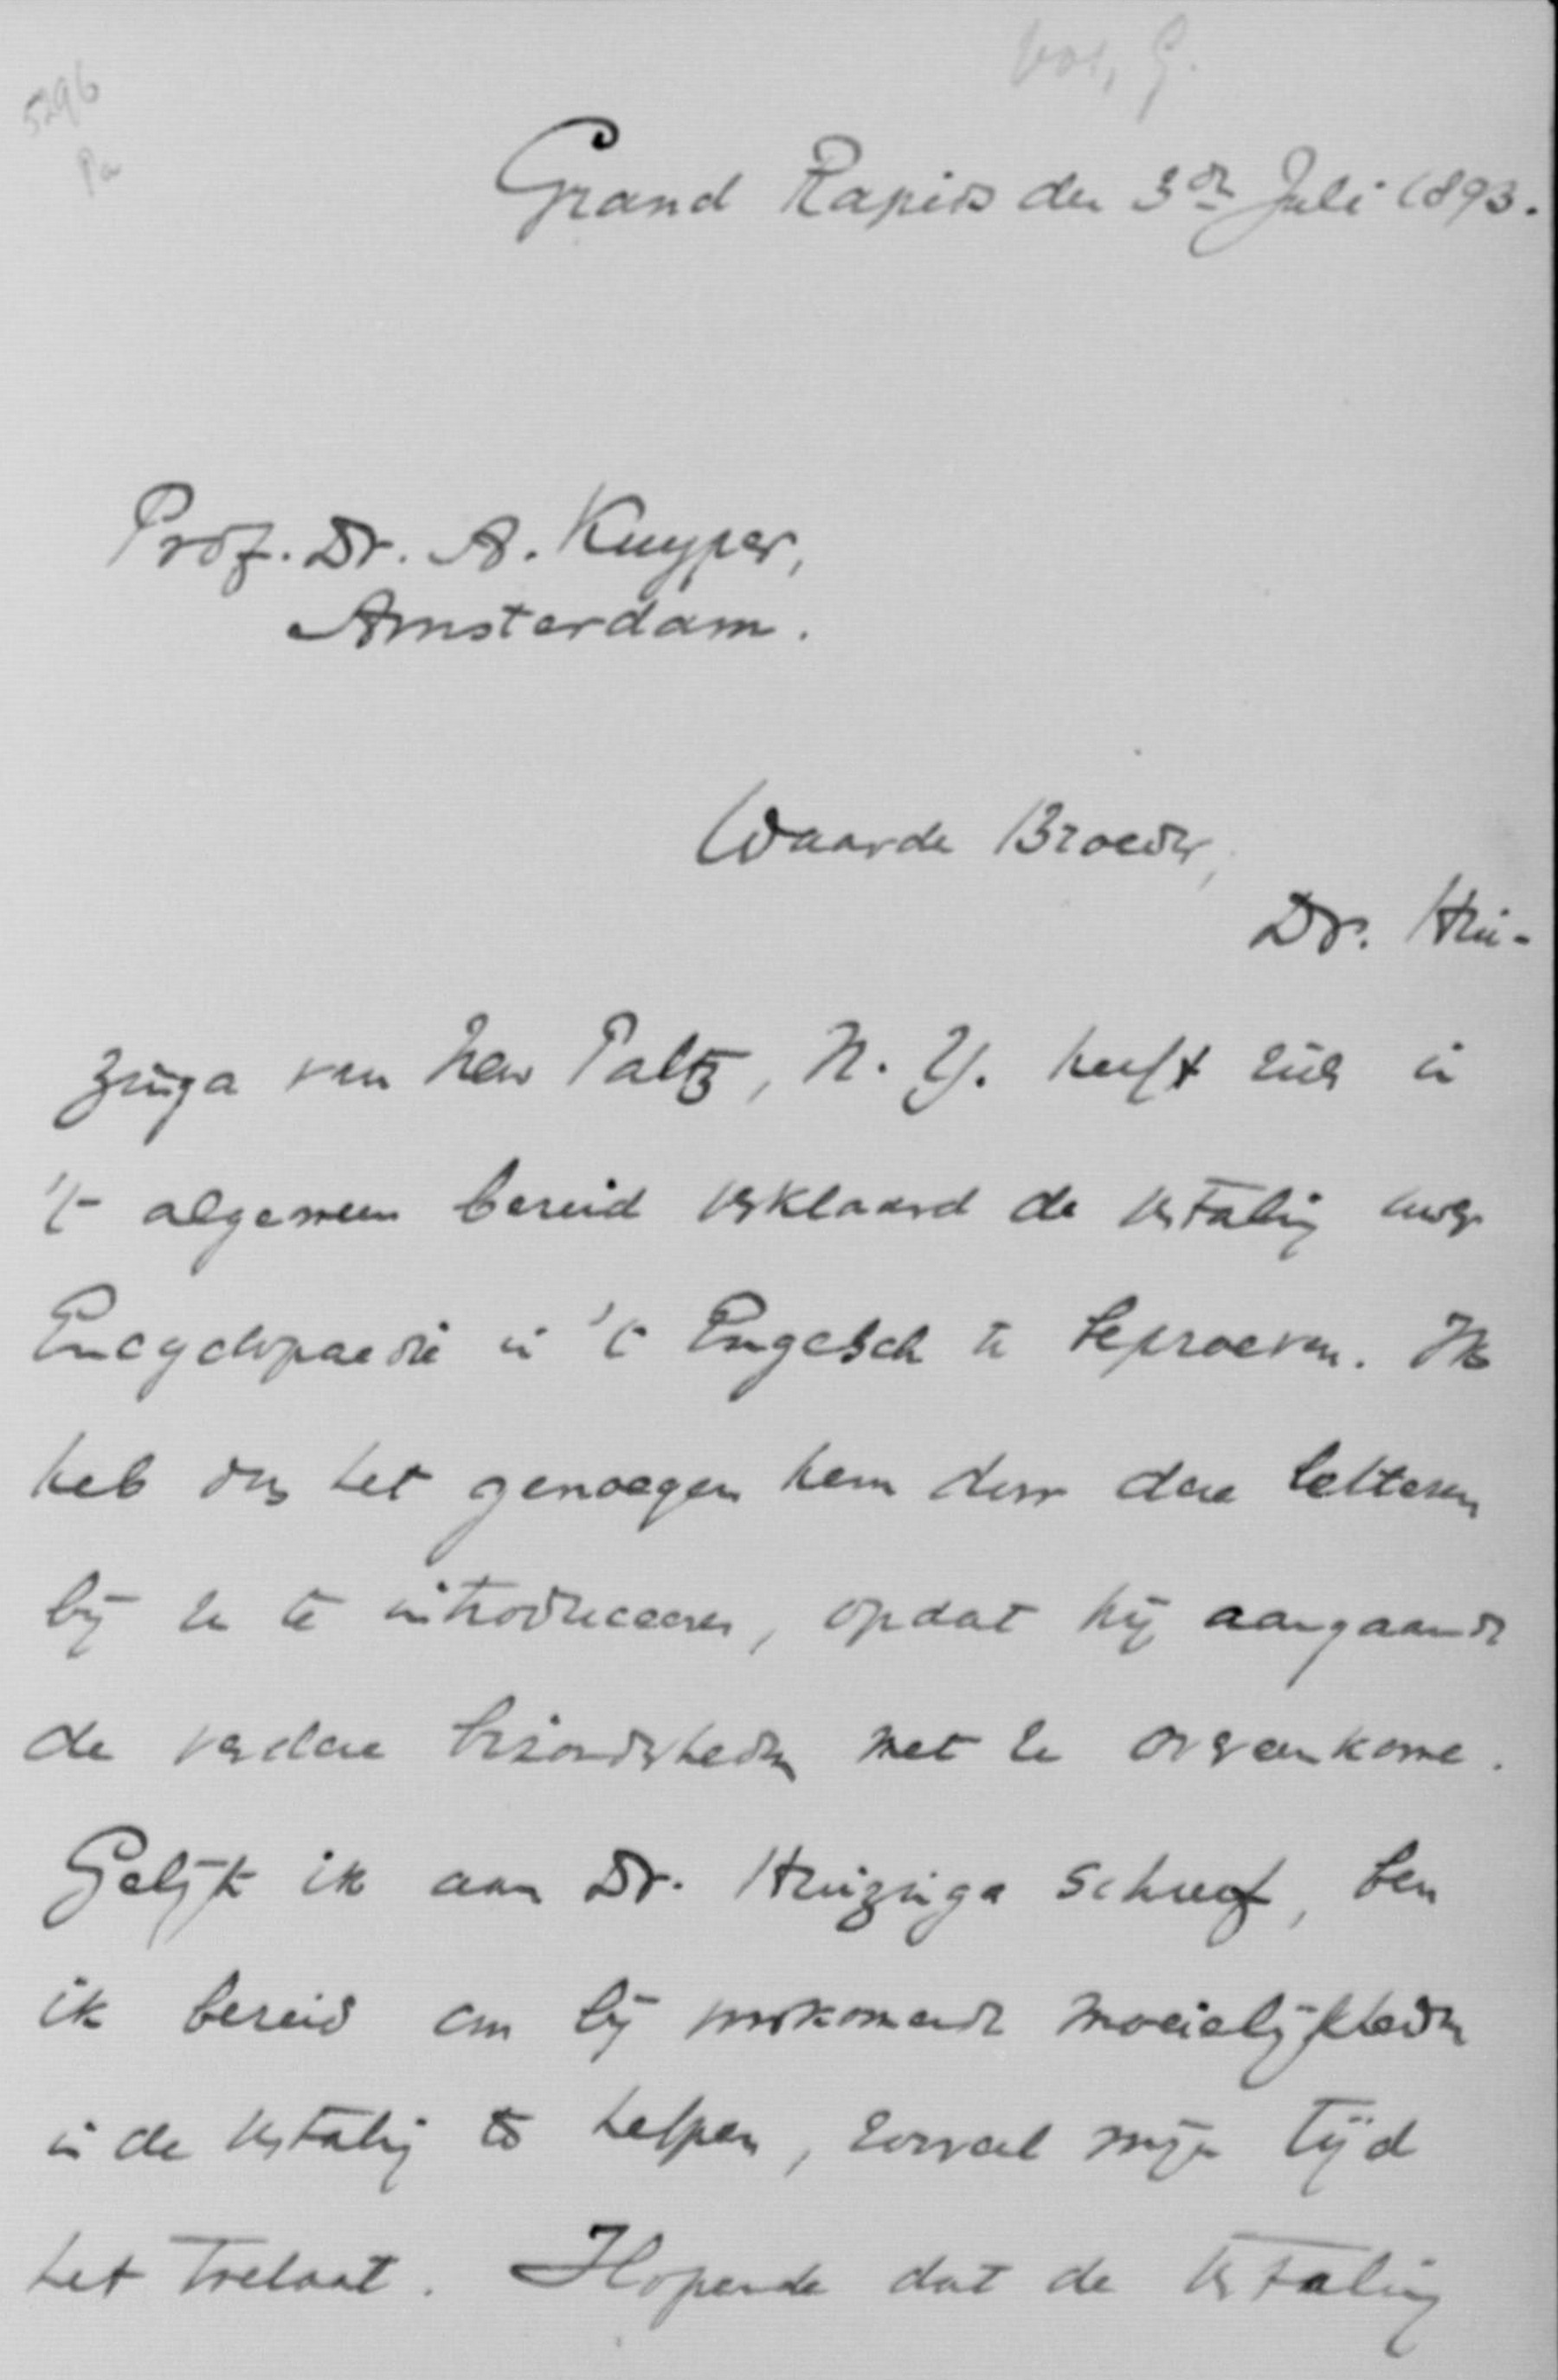 Vos, G.
5296
Pa
Grand Rapids den 3den Juli 1893.
Prof. Dr. A. Kuyper,
Amsterdam.
Waarde Broeder,
Dr. Hui-
zinga van New Paltz, N. Y. heeft zich in
't algemeen bereid verklaard de vertaling uwer
Encyclopaedie in 't Engelsch te beproeven. Ik
heb dus het genoegen hem door deze letteren
bij U te introduceeren, opdat hij aangaande
de verdere bizonderheden met U overeenkome.
Gelijk ik aan Dr. Huizinga schreef, ben
ik bereid om bij voorkomende moeielijkheden
in de vertaling te helpen, zooveel mijn tijd
het toelaat. Hopende dat de vertaling